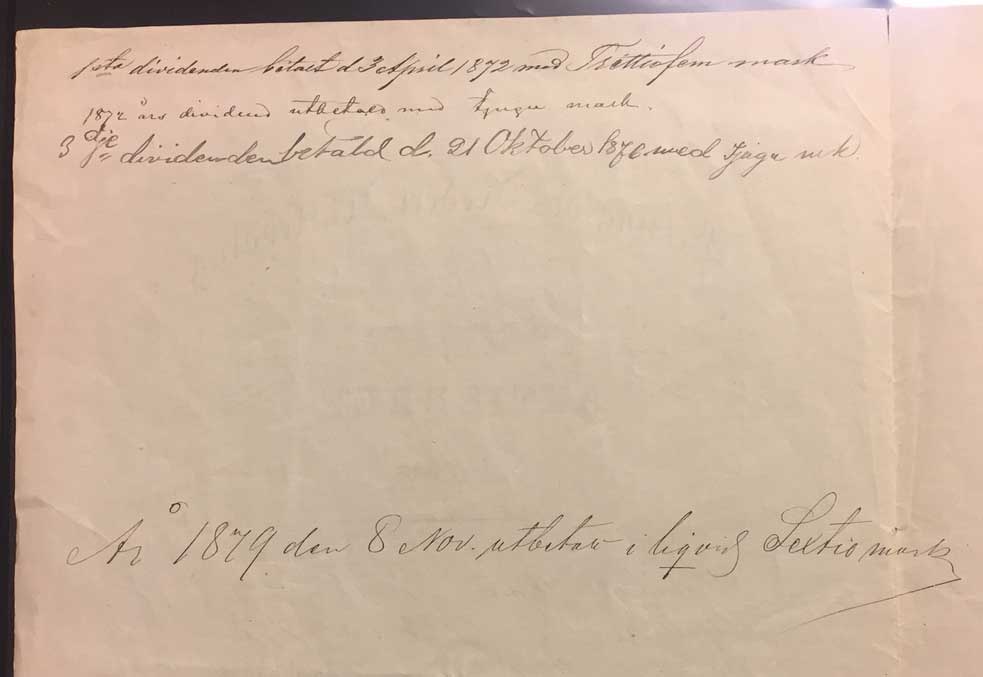 1sta dividenden betalt d 3 April 1872 med Trettiofem mark
1872 års dividend utbetald med tjugu mark.
3dje dividenden betald d. 21 Oktober 1876 med Tjugu mk.
År 1879 den 8 Nov. utbetalt i liqvid Sextio mark